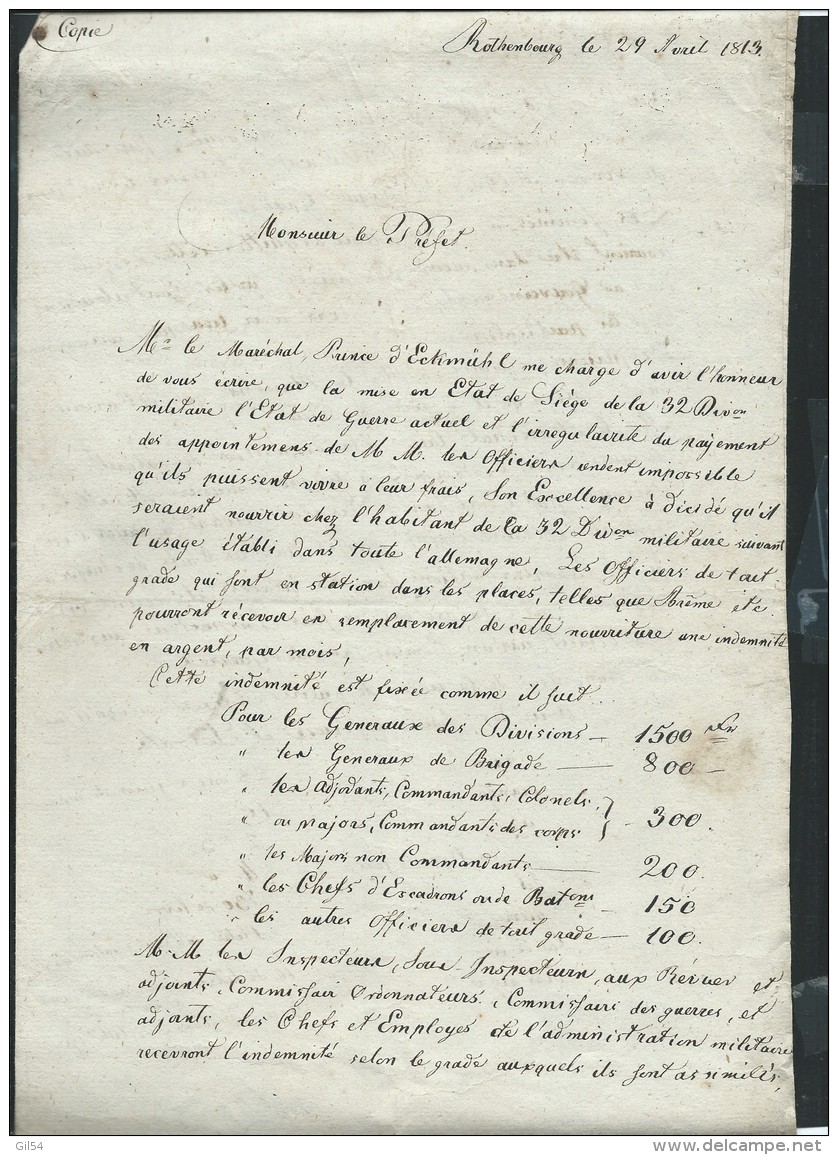 Copie
Rothenbourg le 29 Avril 1813.
Monsieur le Préfet.
Mr. le Maréchal, Prince d'Eckmühl me charge d'avir l'honneur
de vous écrire, que la mise en Etat de Siège de la 32 Divon
militaire l'Etat de Guerre actuel et l'irregularité du payement
des appointemens de M M. les Officiers rendent impossible
qu'ils puissent vivre à leur frais, Son Exccellence à dicidé qu'il
seraient nourrir chez l'habitant de la 32 Divon militaire suivant
l'usage établi dans toute l'allemagne, Les Officiers de tout
grade qui sont en station dans les places, telles que Brême etc.
pourront récevoir en remplacement de cette nourriture une indemnité
en argent, par mois,
Cette indemnité est fixée comme il suit..
Pour les Generaux des Divisions — 1500 Frs
" les Generaux de Brigade — 800 —
" les Adjodants, Commandants, Colonels,
" ou Majors, Commandants des corps } - 300.
" les Majors non Commandants — 200.
" les Chefs d'Escadrons ou de Batons — 150
" les autres Officiers de tout grade — 100.
M-M les Inspecteurs, Sous-Inspecteurs, aux Révues et
adjoints, Commissair Ordonnateurs, Commissairs des guerres, et
adjoints, les Chefs et Employes de l'administration militaire
recevront l'indemnité selon le grade auxquels ils sont assimilés,
Gil54
www.delcampe.net